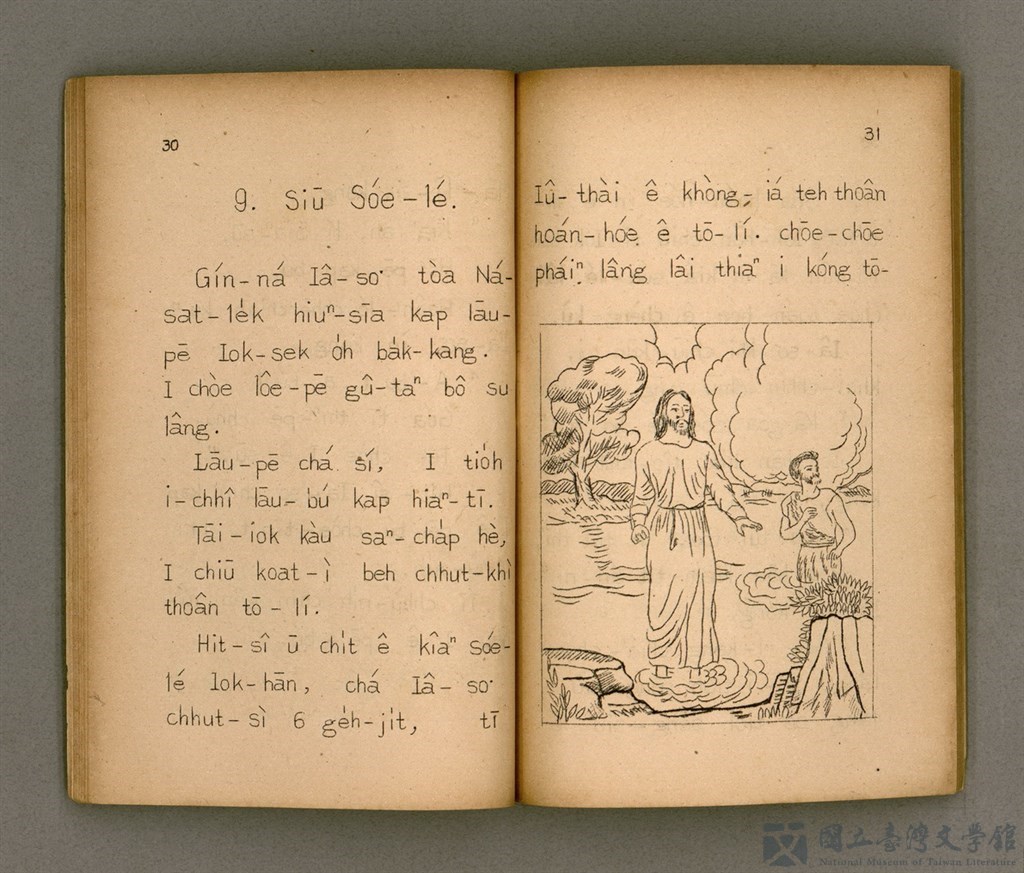 30
9. Siū Sóe-lé.
Gín-ná Iâ-so͘ tòa Ná-
sat-le̍k hiuⁿ-sīa kap lāu-
pē Iok-sek o̍h ba̍k-kang.
I chòe lôe-pē gû-taⁿ bô su
lâng.
Lāu-pē chá sí, I tio̍h
i-chhî lāu-bú kap hiaⁿ-tī.
Tāi-iok kàu saⁿ-cha̍p hè,
I chiū koat-ì beh chhut-khì
thoân tō-lí.
Hit-sî ū chi̍t ê kîaⁿ sóe-
lé Iok-hān, chá Iâ-so͘
chhut-sì 6 ge̍h-ji̍t, tī
31
Iû-thài ê khòng-iá teh thoân
hoán-hóe ê tō-lí. chōe-chōe
pháiⁿ lâng lâi thiaⁿ i kóng tō-
國立臺灣文學館
National Museum of Taiwan Literature